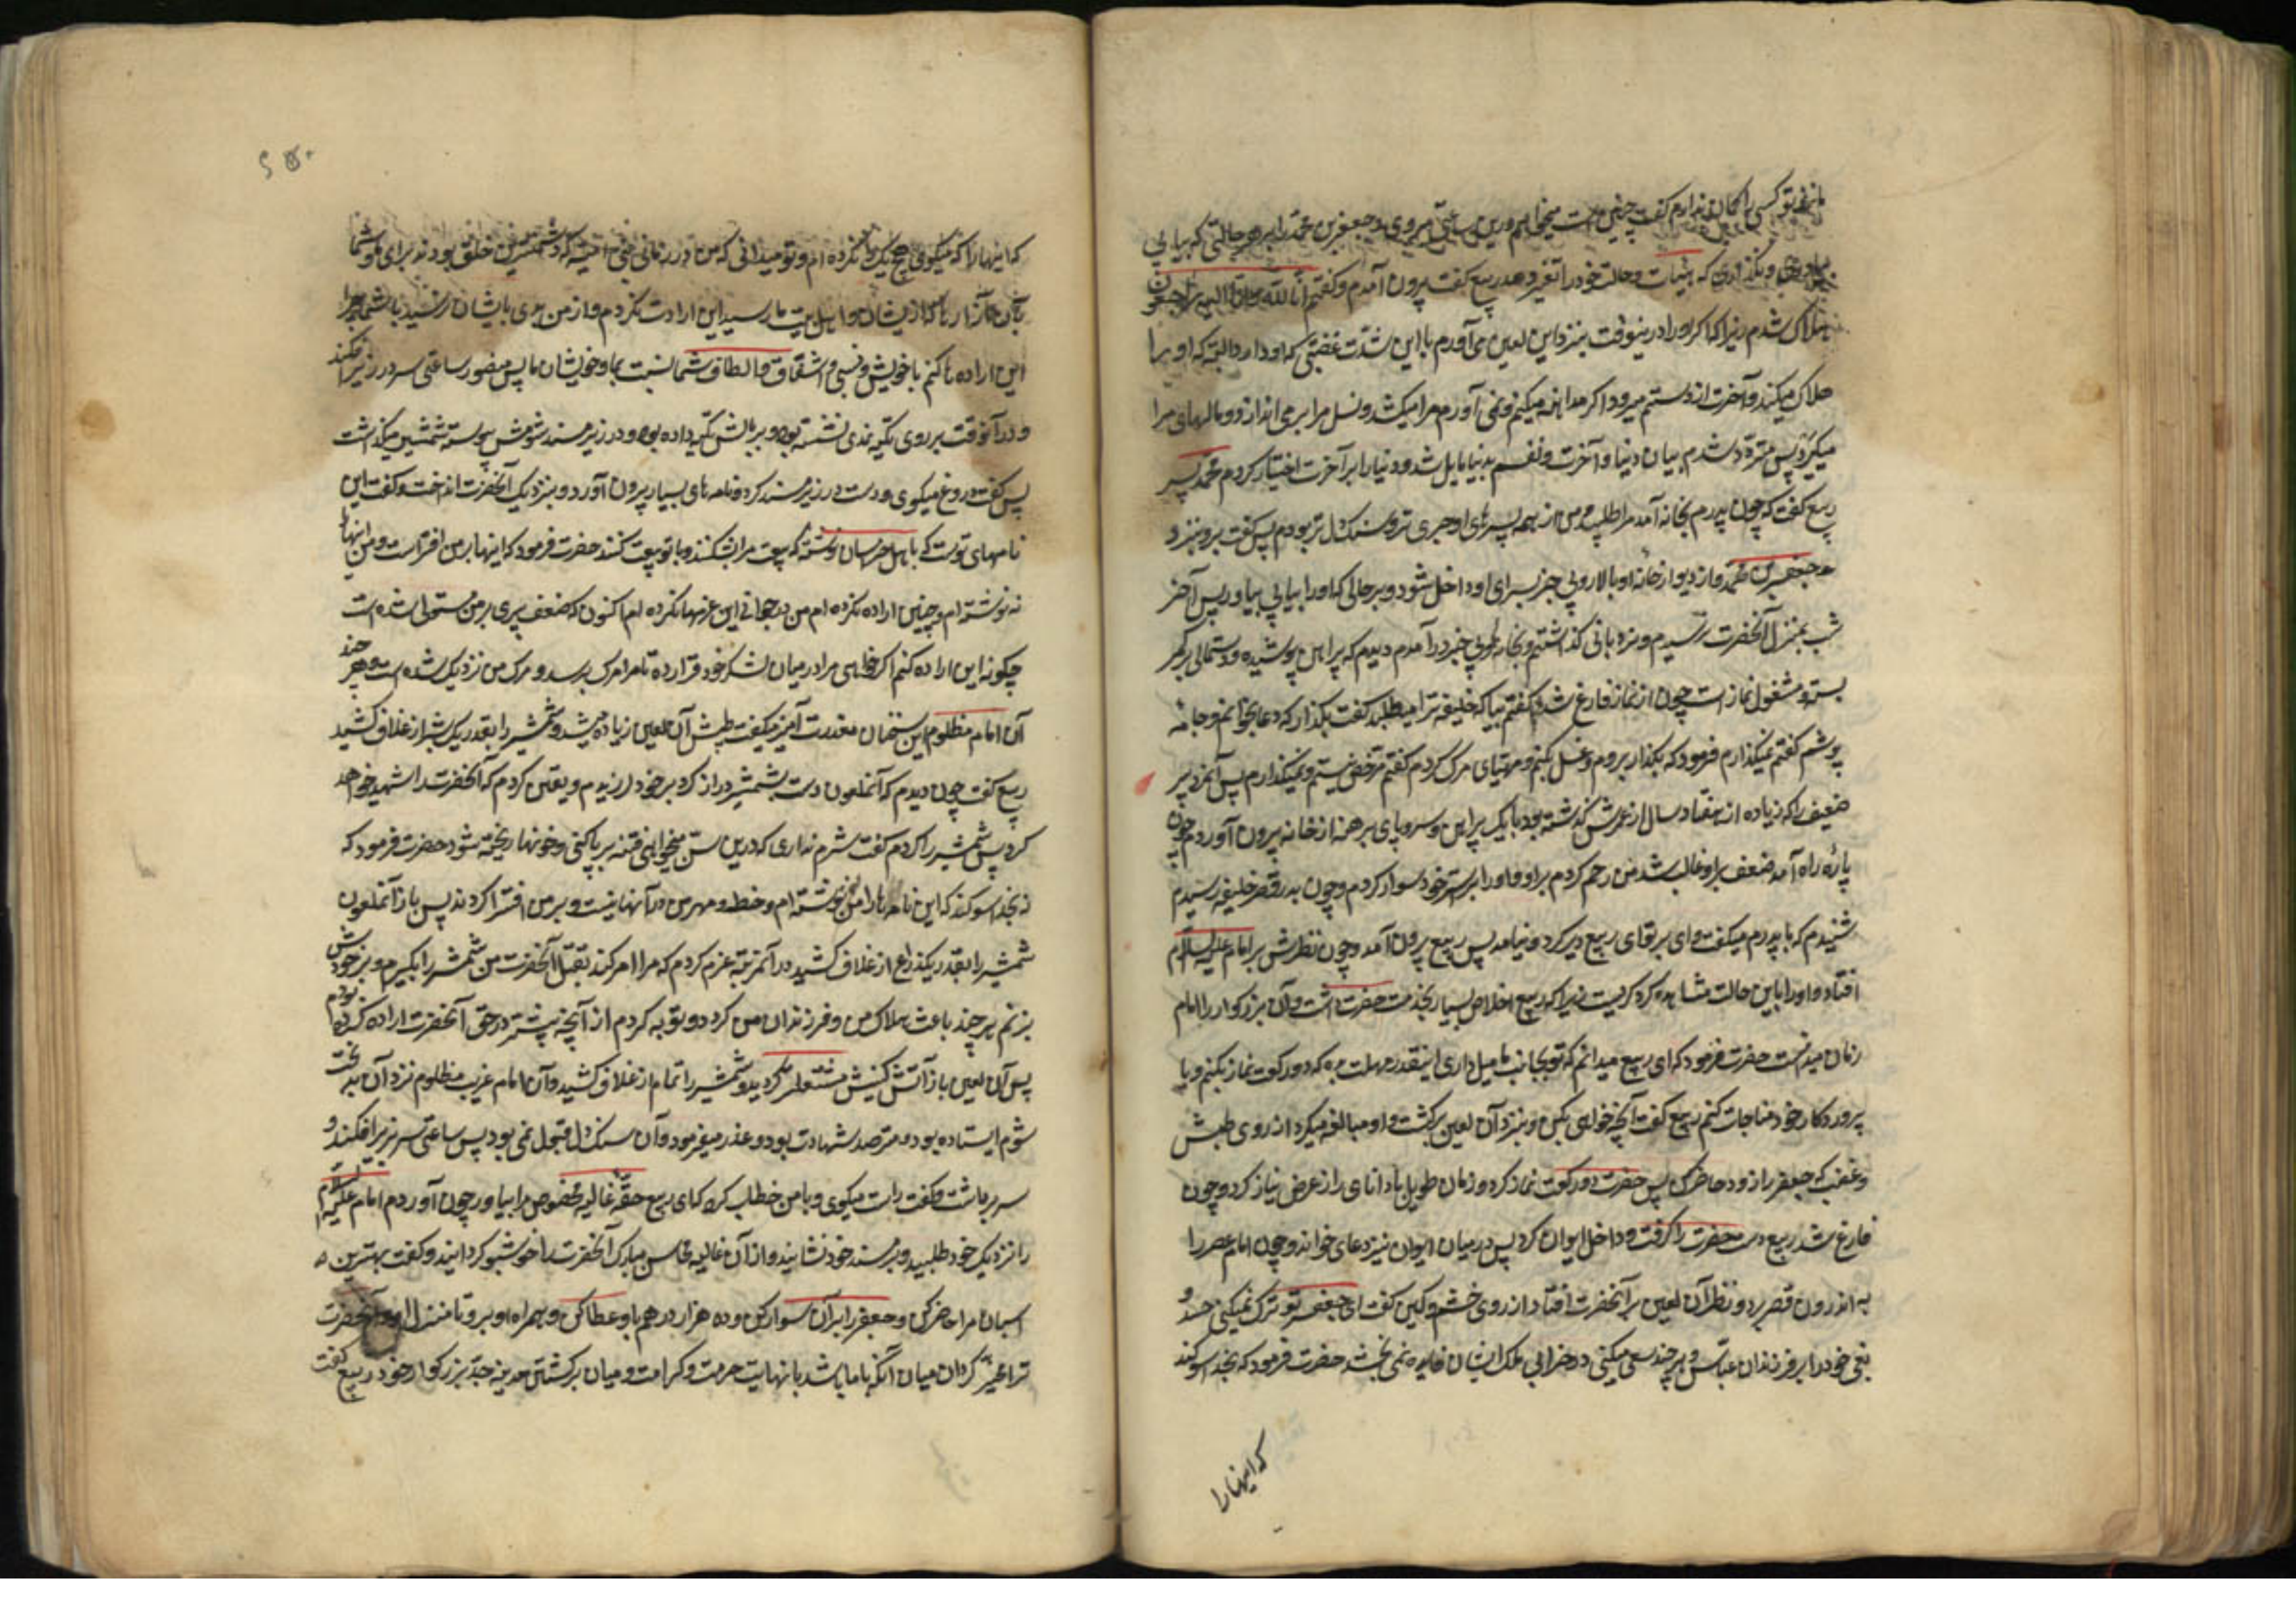 مانند تو کسی را گمان ندارم گفت چنین است میخواهم درین ساعت میروی و جعفر بن محمد را بهر حالتی که بیابی
بیاوری و نگذاری که هیئات و حالت خود را تغییر دهد ربیع گفت بیرون آمدم و گفتم انا لله و انا الیه راجعون
هلاک شدم زیرا که اگر او را درینوقت بنزد این لعین می آورم با این شدت غضبی که او دارد البته که او را
هلاک میکند و آخرت از دستم میرود و اگر مداهنه میکنم و نمی آورم مرا میکشد و نسل مرا بر می اندازد و مالهای مرا
میگیرد پس متردد شدم میان دنیا و آخرت و نفسم بدنیا مایل شد و دنیا را بر آخرت اختیار کردم محمد پسر
ربیع گفت که چون پدرم بخانه آمد مرا طلبید و من از همه پسرهای او جری تر و سنک دل تر بودم پس گفت برو بنزد
جعفر بن محمد و از دیوار خانه او بالا رو بی خبر بسرای او داخل شود و بر حالی که او را بیابی بیاور پس آخر
شب بمنزل آنحضرت رسیدم و نردبانی گذاشتم و بخانه او بی خبر در آمدم دیدم که پیراهن پوشیده و دستمالی بر کمر
بسته و مشغول نماز است چون از نماز فارغ شد گفتم بیا که خلیفه ترا میطلبد گفت بگذار که دعا بخوانم و جامه
پوشم گفتم نمیگذارم فرمود که بگذار بروم و غسل بکنم و مهیای مرک گردم گفتم مرخص نیستم و نمیگذارم پس آن مرد پیر
ضعیف را که زیاده از هفتاد سال از عمرش گذشته بود با یک پیراهن و سر و پای برهنه از خانه بیرون آوردم چون
پاره راه آمد ضعف بر او غالب شد من رحم کردم بر او و او را بر استر خود سوار کردم و چون بدر قصر خلیفه رسیدم
شنیدم که با پدرم میگفت وای بر تو ای ربیع دیر کرد و نیامد پس ربیع بیرون آمد و چون نظرش بر امام علیه السلام
افتاد و او را باین حالت مشاهده کرد گریست زیرا که ربیع اخلاص بسیار بخدمت حضرت داشت و آن بزرکوار را امام
زمان میدانست حضرت فرمود که ای ربیع میدانم که تو بجانب ما میل داری اینقدر مهلت بده که دو رکعت نماز بکنم و با
پروردکار خود مناجات کنم ربیع گفت آنچه خواهی بکن و بنزد آن لعین برگشت و او مبالغه میکرد از روی طیش
و غضب که جعفر را زود حاضر کن پس حضرت دو رکعت نماز کرد و زمان طویل با دانای راز عرض نیاز کرد و چون
فارغ شد ربیع دست حضرت را گرفت و داخل ایوان کرد پس در میان ایوان نیز دعای خواند و چون امام عصر را
به اندرون قصر برد و نظر آن لعین بر آنحضرت افتاد از روی خشم و کین گفت ای جعفر تو ترک نمیکنی حسد و
بغی خود را بر فرزندان عباس و هر چند سعی میکنی در خرابی ملک ایشان فایده نمی بخشد حضرت فرمود که بخدا سوکند
که اینها را
که اینها را که میگوئی هیچ یک را نکرده ام و تو میدانی که من در زمان بنی امیه که دشمنترین خلق بودند برای ما و شما
بآن آزارها که از ایشان بر ما و اهل بیت ما رسید این ارادت نکردم و از من بدی بایشان نرسید با شما چرا
این اراده ها کنم با خویش نسبی و اشفاق و الطاف شما نسبت بما و خویشان ما پس منصور ساعتی سر در زیر افکند
و در آنوقت بر روی تکیه نمدی نشسته بود و بر بالش تکیه داده بود و در زیر مسند شومش پیوسته شمشیر میگذاشت
پس گفت دروغ میگوی و دست در زیر مسند کرد و نامه های بسیار بیرون آورد و بنزدیک آنحضرت انداخت و گفت این
نامهای توست که باهل خراسان نوشته که بیعت مرا بشکنند و با تو بیعت کنند حضرت فرمود که اینها بر من افتراست و من اینها
نه نوشته ام و چنین اراده نکرده ام من در جوانی این عزمها نکرده ام اکنون که ضعف پیری بر من مستولی شده است
چگونه این اراده کنم اگر خواهی مرا در میان لشکر خود قرار ده تا مرا مرک برسد و مرک من نزدیک شده است و هر چند
آن امام مظلوم این سخنان معذرت آمیز میگفت طیش آن لعین زیاده میشد و شمشیر را بقدر یک شبر از غلاف کشید
ربیع گفت چون دیدم که آنملعون دست بشمشیر دراز کرد بر خود لرزیدم و یقین کردم که آنحضرت را شهید خواهد
کرد پس شمشیر را کردم گفت شرم نداری که درین سن میخواهی فتنه بر پا کنی و خونها ریخته شود حضرت فرمود که
نه بخدا سوکند که این نامه ها را من ننوشته ام و خط و مهر من در آنها نیست و بر من افترا کردند پس باز آنملعون
شمشیر را بقدر یکذراع از غلاف کشید در آنمرتبه عزم کردم که مرا امر کند بقتل آنحضرت من شمشیر را بگیرم و بر خودش
بزنم هر چند باعث هلاک من و فرزندان من گردد و توبه کردم از آنچه پیشتر در حق آنحضرت اراده کرده بودم
پس آن لعین باز آتش کینش مشتعل گردید و شمشیر را تمام از غلاف کشید و آن امام غریب مظلوم نزد آن بدبخت
شوم ایستاده بود و مترصد شهادت بود و عذر میفرمود و آن سنک دل قبول نمی نمود پس ساعتی سر بزیر افکند و
سر برداشت و گفت راست میگوی و با من خطاب کرد که ای ربیع حقه غالیه مخصوص مرا بیاور چون آوردم امام علیه السلام
را نزدیک خود طلبید و بر مسند خود نشانید و از آن غالیه محاسن مبارک آنحضرت را خوشبو گردانید و گفت بهترین
اسبان مرا حاضر کن و جعفر را بر آن سوار کن و ده هزار درهم باو عطا کن و همراه او برو تا منزل او و آنحضرت
را مخیر گردان میان آنکه با ما باشد با نهایت حرمت و کرامت و میان برگشتن بمدینه جد بزرکوار خود ربیع گفت